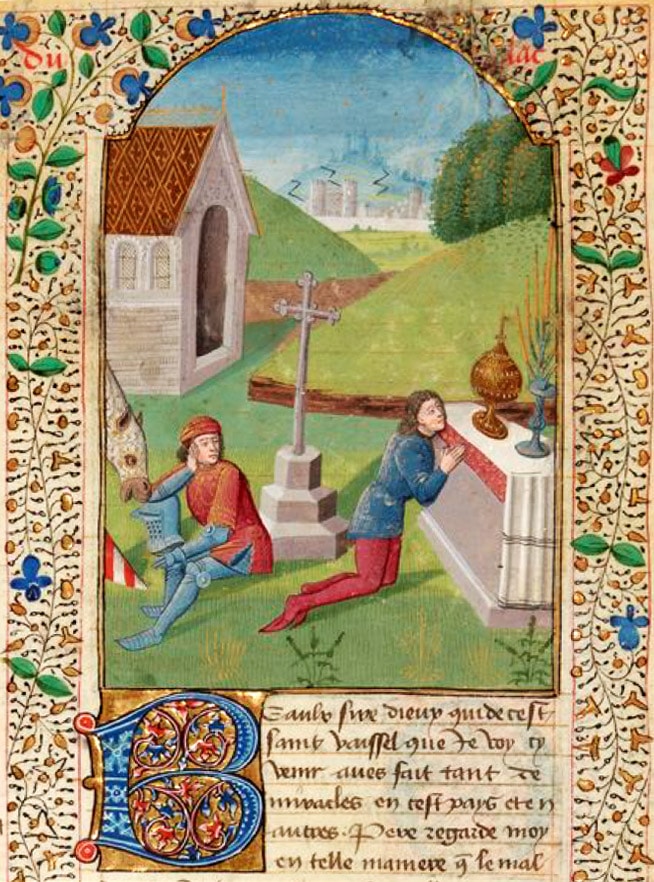 du lac
Beaulx sire dieux qui de cest
saint vaissel que Je voy cy
venir aues fait tant de
miracles en cest pays et en
autres. Pere regarde moy
en telle maniere q̄ le mal